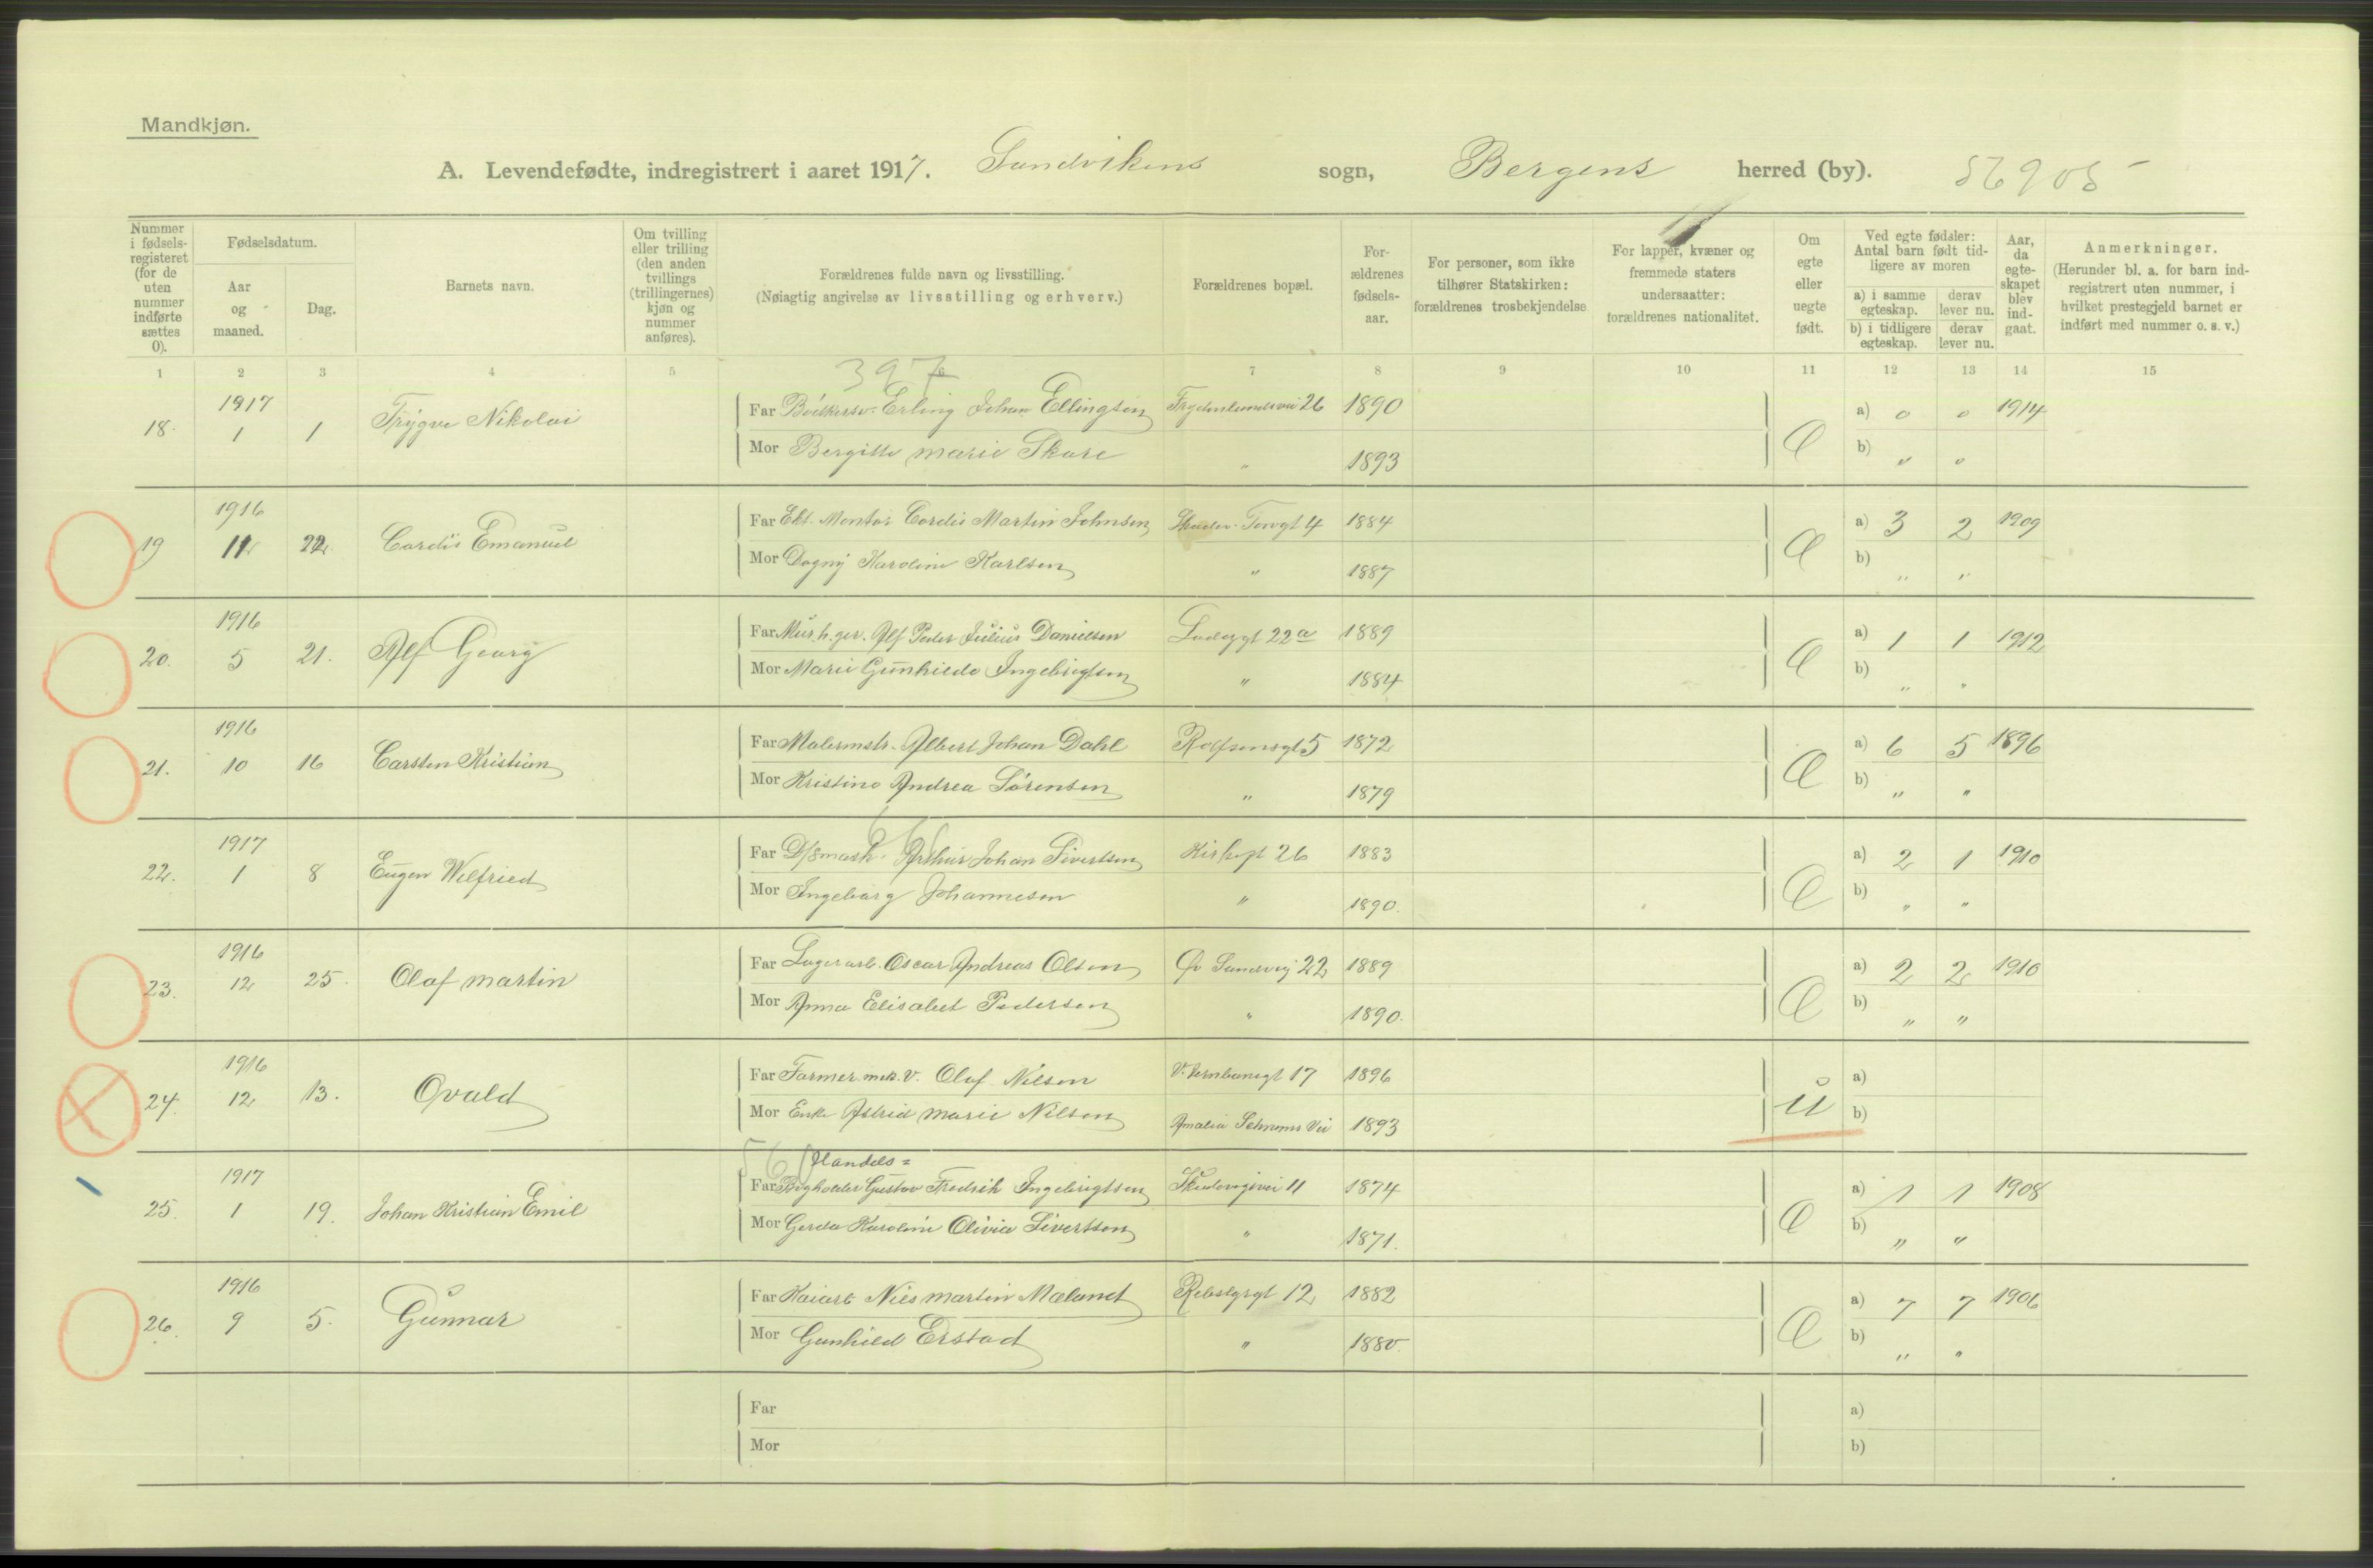 Mandkjøn.
A. Levendefødte, indregistrert i aaret 1917. Sandvikens sogn, Bergens herred (by). 56905
Nummer i fødsels-registeret (for de uten nummer indførte sættes 0).
Fødselsdatum.
Aar og maaned.
Dag.
Barnets navn.
Om tvilling eller trilling (den anden tvillings (trillingernes) kjøn og nummer anføres).
Forældrenes fulde navn og livsstilling.
(Nøiagtig angivelse av livsstilling og erhverv.)
Forældrenes bopæl.
For-ældrenes fødsels-aar.
For personer, som ikke tilhører Statskirken: forældrenes trosbekjendelse
For lapper, kvæner og fremmede staters undersaatter: forældrenes nationalitet.
Om egte eller uegte født.
Ved egte fødsler: Antal barn født tid-ligere av moren
a) i samme egteskap. derav lever nu.
b) i tidligere egteskap. derav lever nu.
Aar, da egte-skapet blev ind-gaat.
Anmerkninger.
(Herunder bl. a. for barn ind-registrert uten nummer, i hvilket prestegjeld barnet er indført med nummer o. s. v.)
1 2 3 4 5 6 7 8 9 10 11 12 13 14 15
397
18. 1917 1 1 Trygve Nikolai Far Bødkersv. Erling Johan Ellingsen Frydenlundsvei 26 1890 a) 0 0 1914
Mor Bergitte Marie Skare " 1893 E b) " "
19 1916 11 22 Cardis Emanuel Far Ekt. Montør Cordis Martin Johnsen 4 1884 a) 3 2 1909
Mor Dagny Karoline Karlsen " 1887 E b) " "
20. 1916 5 21. Alf Georg Far Mur.h.ger. Alf Peder Julius Danielsen Ladeggt 22a 1889 a) 1 1 1912
Mor Marie Gunhilde Ingebrigtsen " 1884 E b) " "
21. 1916 10 16 Carsten Kristian Far Malermstr. Albert Johan Dahl Rolfsensgt 5 1872 a) 6 5 1896
Mor Kristine Andrea Sørensen " 1879 E b) " "
22. 1917 1 8 Eugen Wilfried Far D/Smask. Arthur Johan Sivertsen Kirkegt 26 1883 a) 2 1 1910
Mor Ingeborg Johannesen " 1890. E b) " "
23. 1916 12 25. Olaf Martin Far Lagerarb. Oscar Andreas Olsen Øv Sandvvei 22 1889 a) 2 2 1910
Mor Anna Elisabet Pedersen " 1890. E b) " "
24. 1916 12 13. Ovald Far Farmer Olaf Nilsen V. Jernbanegt 17 1896 a)
Mor Enke Astrid Marie Nilsen Amalia Vei 1893 U b)
560 Handels=
25. 1917 1 19. Johan Kristian Emil Far Bogholder Gustav Fredrik Ingebrigtsen 11 1874 a) 1 1 1908
Mor Gerda Karoline Olivia Sivertsen " 1871. E b) " "
26. 1916 9 5. Gunnar Far Kaiarb Nils Martin Mæland Rebslgrgt 12 1882 a) 7 7 1906
Mor Gunhild Erstad " 1880. E b) " "
Far a)
Mor b)